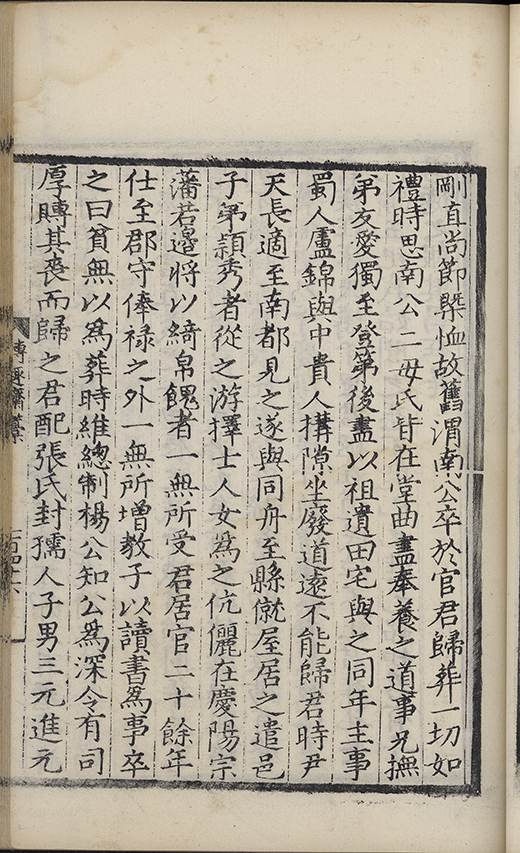 剛直尚節槩恤故舊渭南公卒於官君歸葬一切如
禮時思南公二母氏皆在堂曲盡奉養之道事兄撫
弟友愛獨至登第後盡以祖遺田宅與之同年主事
蜀人盧錦與中貴人搆隙坐廢道遠不能歸君時尹
天長適至南都見之遂與同舟至縣僦屋居之遣邑
子弟頴秀者從之游擇士人女爲之伉儷在慶陽宗
藩若邉將以綺帛餽者一無所受君居官二十餘年
仕至郡守俸禄之外一無所增教子以讀書爲事卒
之日貧無以爲葬時維總制楊公知公爲深令有司
厚賻其喪而歸之君配張氏封孺人子男三元進元